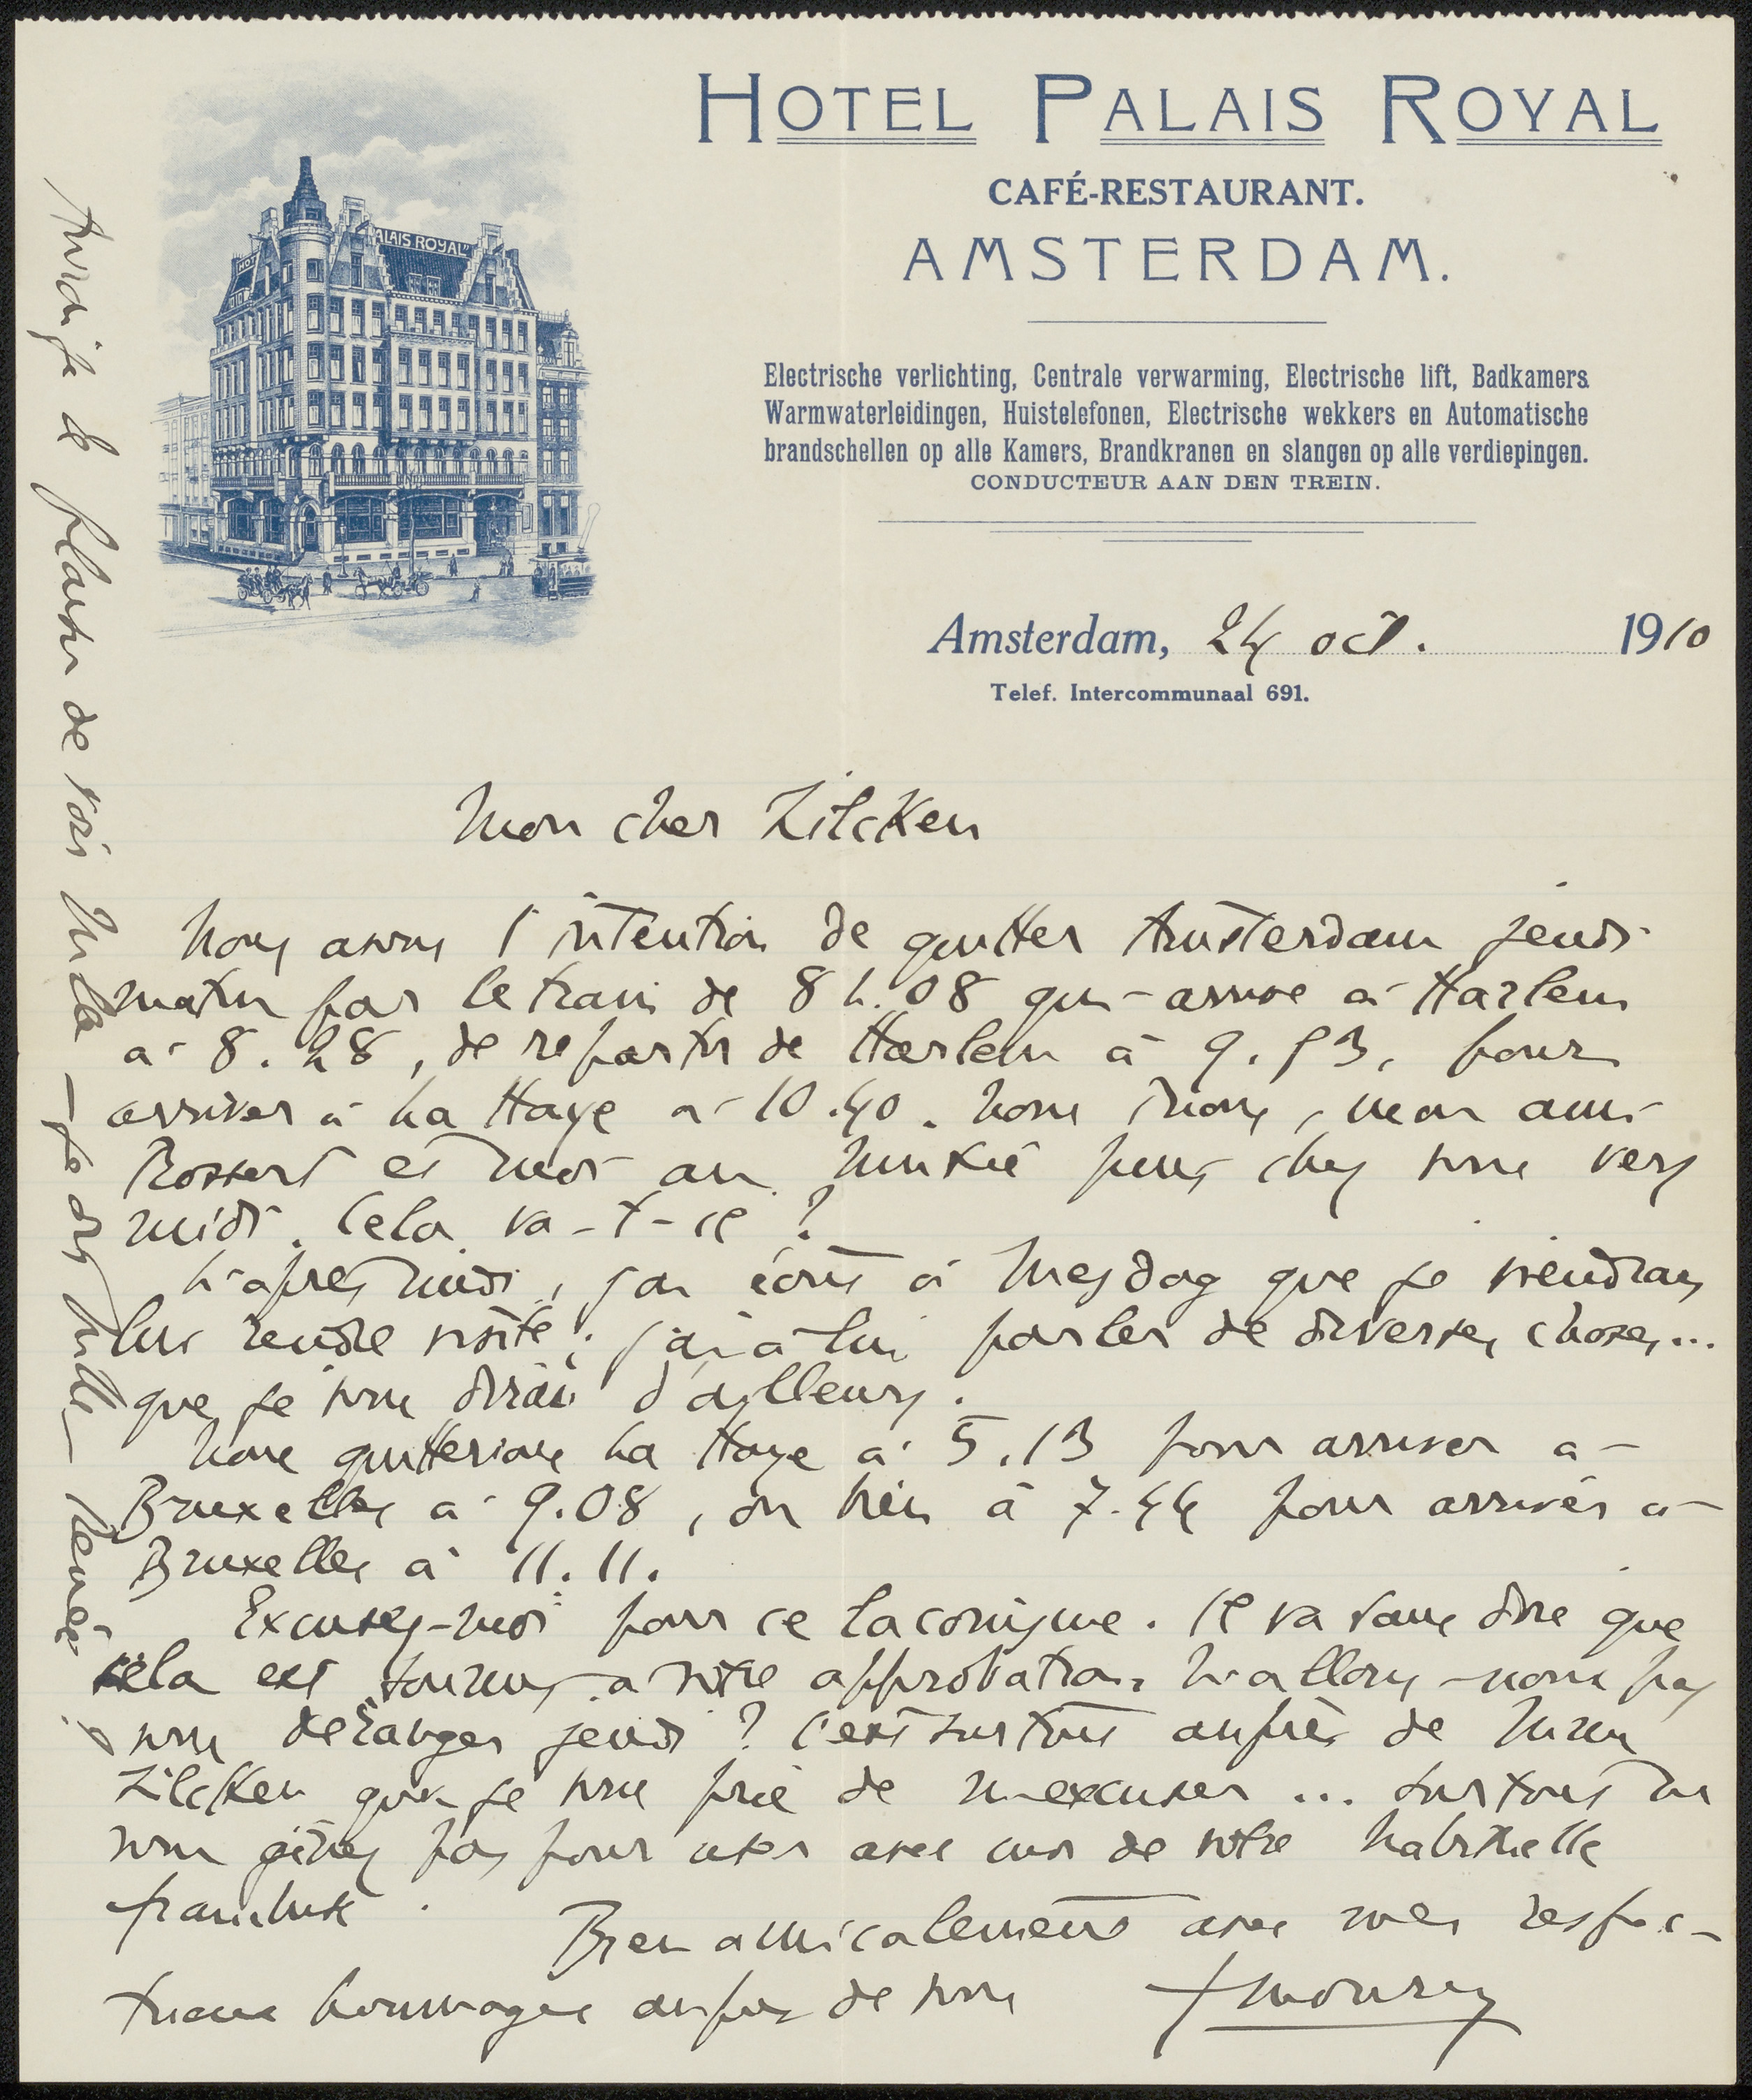 HOTEL PALAIS ROYAL
CAFÉ-RESTAURANT.
AMSTERDAM.
Electrische verlichting, Centrale verwarming, Electrische lift, Badkamers
Warmwaterleidingen, Huistelefonen, Electrische wekkers en Automatische
brandschellen op alle Kamers, Brandkranen en slangen op alle verdiepingen.
CONDUCTEUR AAN DEN TREIN.
HOT
ALAIS ROYAL"
Amsterdam, 24 oct. 1910
Telef. Intercommunaal 691.
Mon cher Zilcken
Nous avons l'intention de quitter Amsterdam jeudi
matin par le train de 8 h. 08 qui arrive à Harlem
à 8.28, de repartir de Harlem à 9.53, pour
arriver à La Haye à 10.40. Nous irions, mon ami
et moi au Musée puis chez vous vers
midi. Cela va-t-il ?
L'après midi, j'ai écrit à Mesdag que je viendrais
lui rendre visite ; j'ai à lui parler de diverses choses...
que je vous dirai d'ailleurs.
Nous quitterions La Haye à 5.13 pour arriver à
Bruxelles à 9.08, ou bien à 7.44 pour arriver à
Bruxelles à 11.11.
Excusez-moi pour ce laconisme. Il va sans dire que
cela est soumis à votre approbation. N'allons-nous pas
vous déranger jeudi ? C'est surtout auprès de Mme
Zilcken que je vous prie de m'excuser ... surtout ne
vous gênez pas pour user avec moi de votre habituelle
franchise.
Bien amicalement avec mes respec-
tueux hommages auprès de vous
Mourey
Aurai-je le plaisir de voir Melle
Renée ?